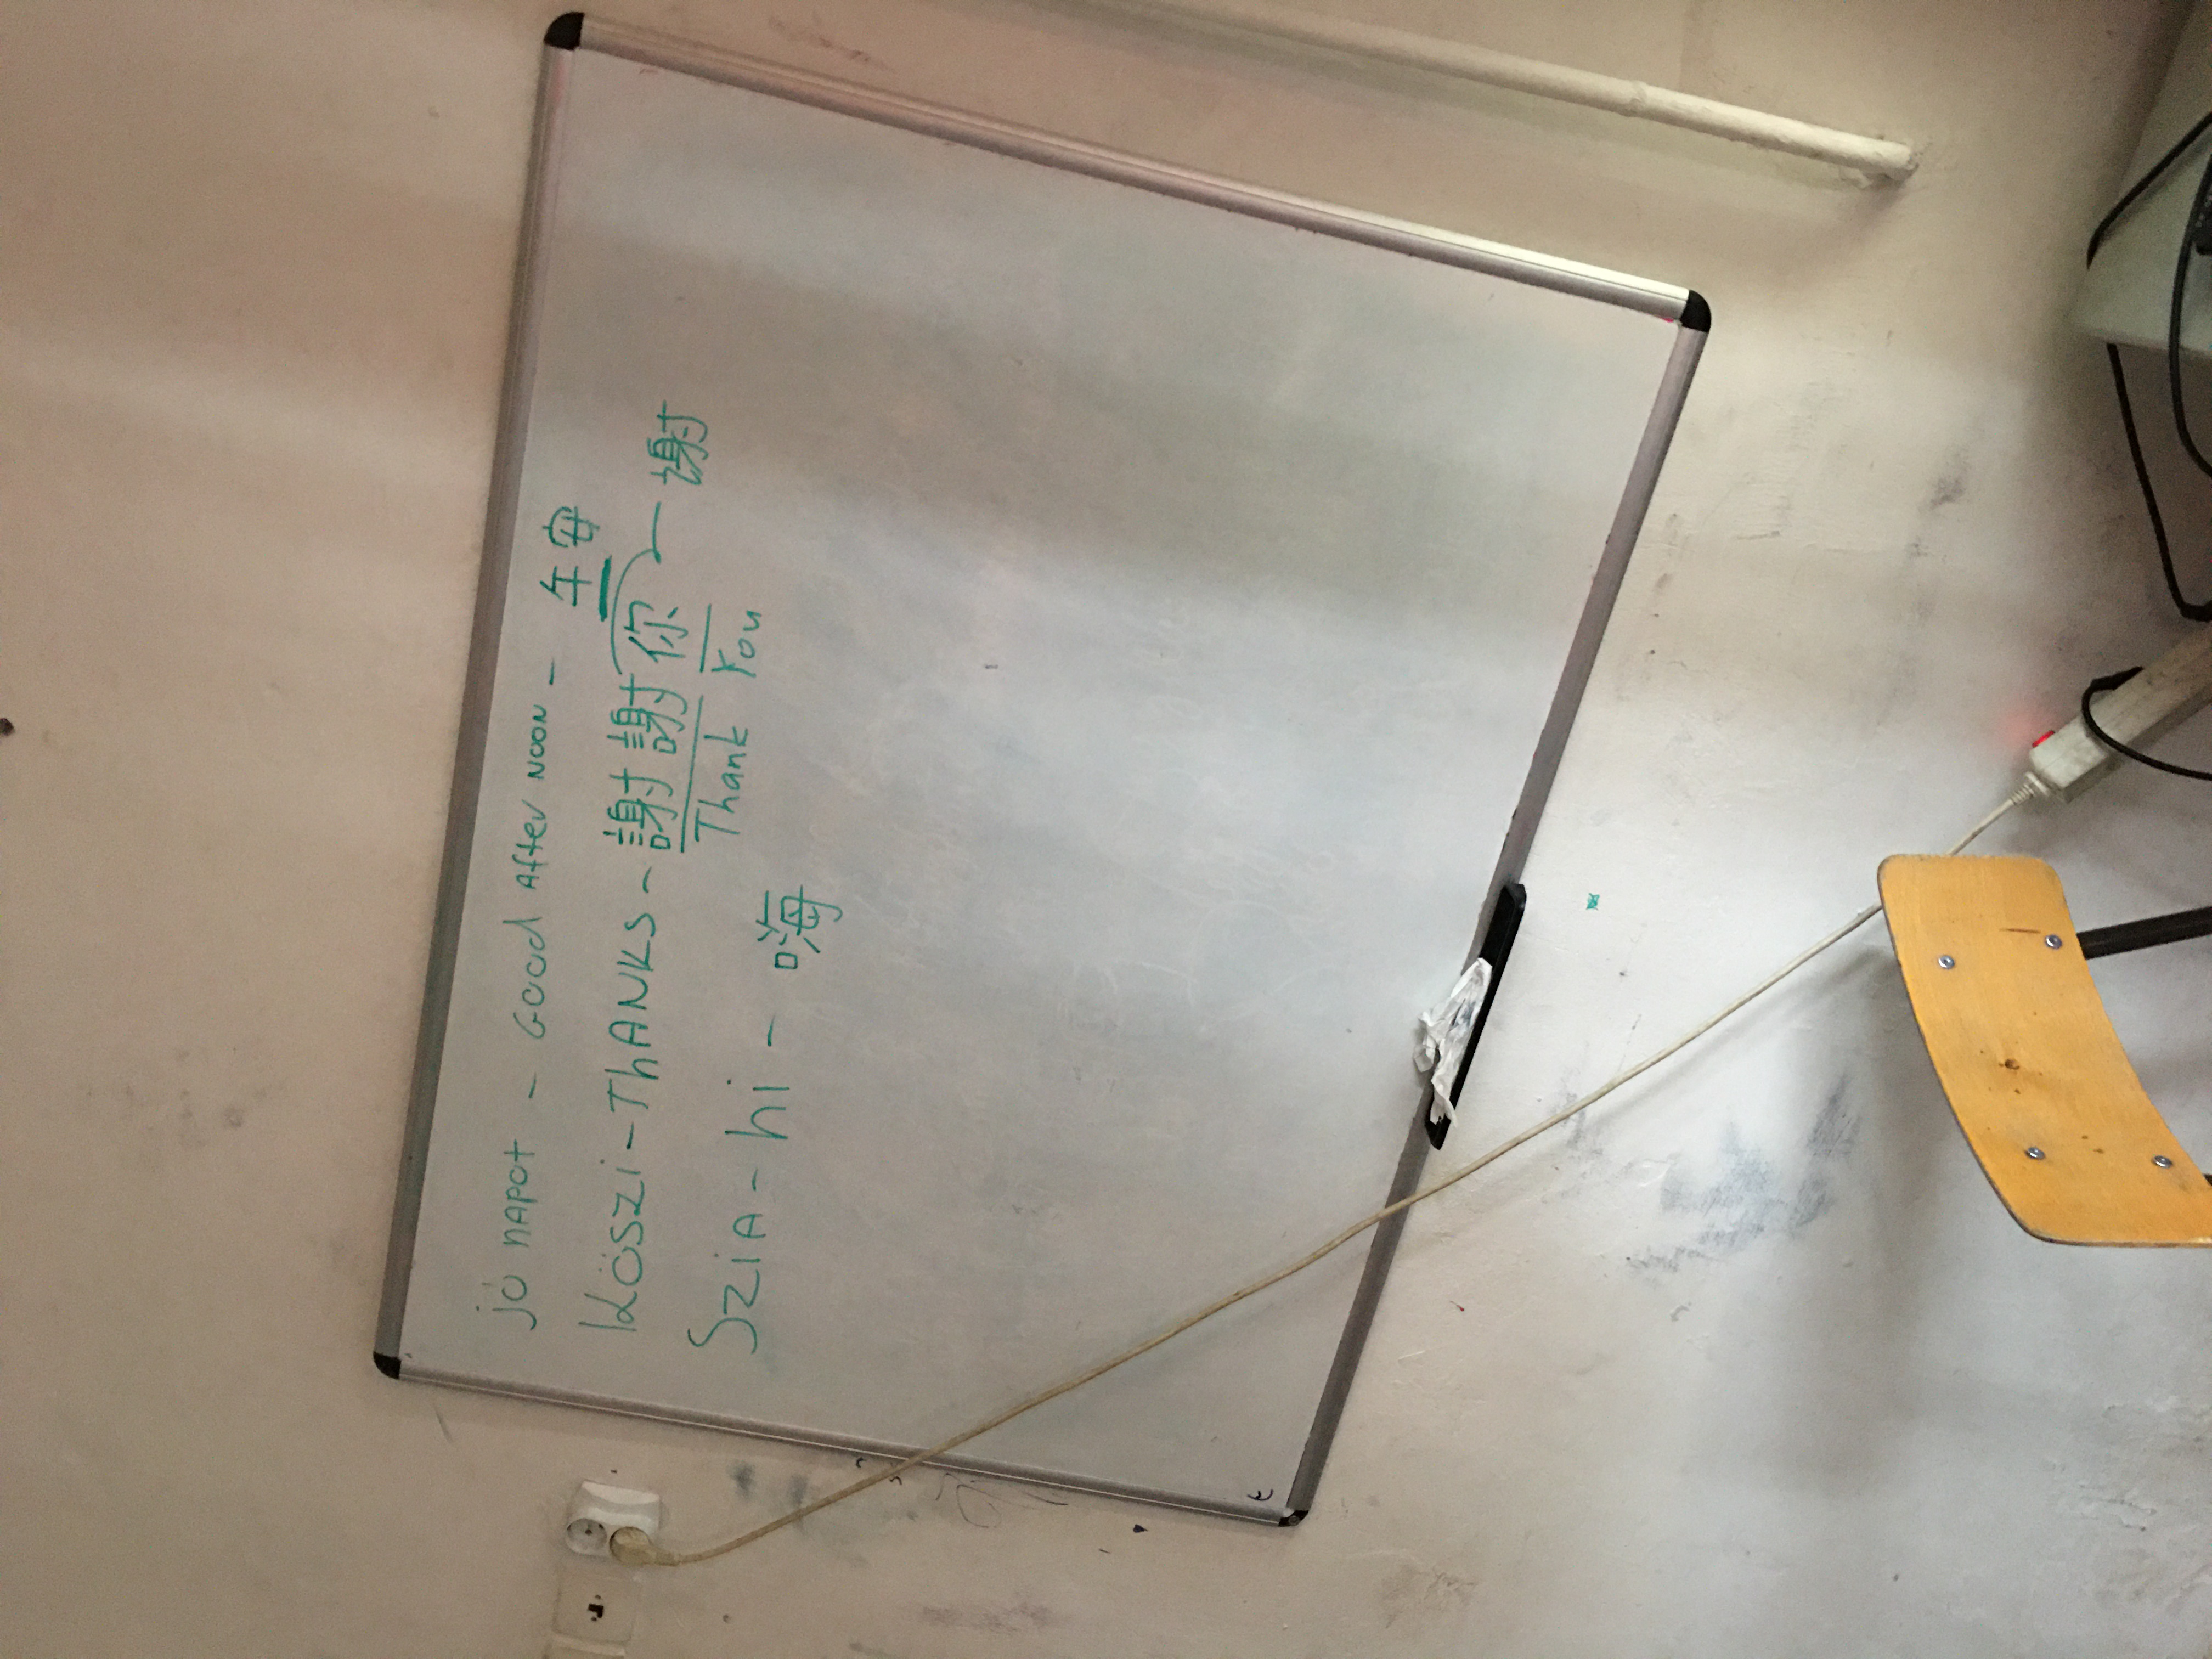 jó nApot - Good After NOON - 午安
Köszi - ThANKS - 謝謝你 - 谢
Thank You
SziA - hi - 嗨
t